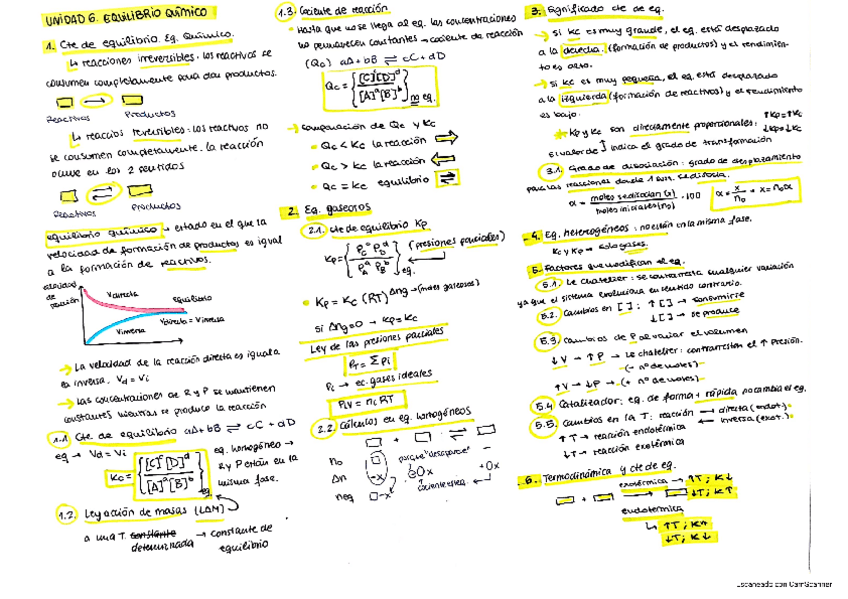 UNIDAD 6. EQUILIBRIO QUÍMICO
1. Cte de equilibrio. Eq. Químico.
↳ reacciones irreversibles: los reactivos se
consumen completamente para dar productos.
→
Reactivos Productos
↳ reaccios reversibles: los reactivos no
se consumen completamente. La reacción
ocurre en los 2 sentidos
⇌
Reactivos Productos
equilibrio químico → estado en el que la
velocidad de formación de productos es igual
a la formación de reactivos.
velocidad
de
reacción
Vdirecta
equilibrio
Vdirecta = Vinversa
Vinversa
→ La velocidad de la reacción directa es igual a
la inversa. Vd = Vi
→ Las concentraciones de R y P se mantienen
constantes mientras se produce la reacción
1.1 Cte de equilibrio aA+bB ⇌ cC + dD
eq → Vd = Vi
Kc = {[C]^c [D]^d / [A]^a [B]^b} eq
eq. homogéneo →
R y P están en la
misma fase.
1.2. Ley acción de masas (LAM)
a una T. constante
determinada → constante de
equilibrio
1.3. Cociente de reacción
Hasta que no se llega al eq. las concentraciones
no permanecen constantes → cociente de reacción
(Qc) aA+bB ⇌ cC+dD
Qc = {[C]^c [D]^d / [A]^a [B]^b} no eq.
→ Comparación de Qc y Kc
Qc < Kc la reacción ⇒
Qc > Kc la reacción ⇐
Qc = Kc equilibrio ⇌
2. Eq. gaseosos
2.1. Cte de equilibrio Kp
Kp = {Pc^c PD^d / PA^a PB^b} eq. (presiones parciales)
Kp = Kc (RT)^Δng → (moles gaseosos)
Si Δng=0 → Kp=Kc
Ley de las presiones parciales
PT = Σ Pi
Pi → ec. gases ideales
PiV = ni RT
2.2. Cálculos en eq. homogéneos
+ ⇌
no
Δn -x porque "desaparece" +0x
neq -x cociente eteq.
3. Significado cte de eq.
→ Si Kc es muy grande, el eq. está desplazado
a la derecha. (formación de productos) y el rendimien-
to es alto.
→ Si Kc es muy pequeña, el eq. está desplazado
a la izquierda (formación de reactivos) y el rendimiento
es bajo.
* Kp y Kc son directamente proporcionales: ↑Kp↑Kc
↓Kp↓Kc
Su valor indica el grado de transformación
3.1. Grado de disociación: grado de desplazamiento
para las reacciones donde 1 sust. se disocia.
α = moles se disocian (x) / moles iniciales (no) · 100
α = x/no → x = noα
4. Eq. heterogéneos: no están en la misma fase.
Kc y Kp → solo gases.
5. Factores que modifican el eq.
5.1. Le chatelier: se contrarresta cualquier variación
ya que el sistema evoluciona en sentido contrario.
5.2. Cambios en [ ]: ↑[ ] → consumirse
↓[ ] → se produce
5.3. Cambios de P al variar el volumen
↓V → ↑P → Le chatelier: contrarrestan el ↑ presión.
(- nº de moles)
↑V → ↓P → (+ nº de moles)
5.4 Catalizador: eq. de forma + rápida no cambia el eq.
5.5. Cambios en la T: reacción → directa (endot.)
← inversa (exot.)
↑T → reacción endotérmica
↓T → reacción exotérmica
6. Termodinámica y cte de eq.
exotérmica → ↑T; K↓
+ → ↓T; K↑
endotérmica
↳ ↑T; K↑
↓T; K↓
Escaneado con CamScanner